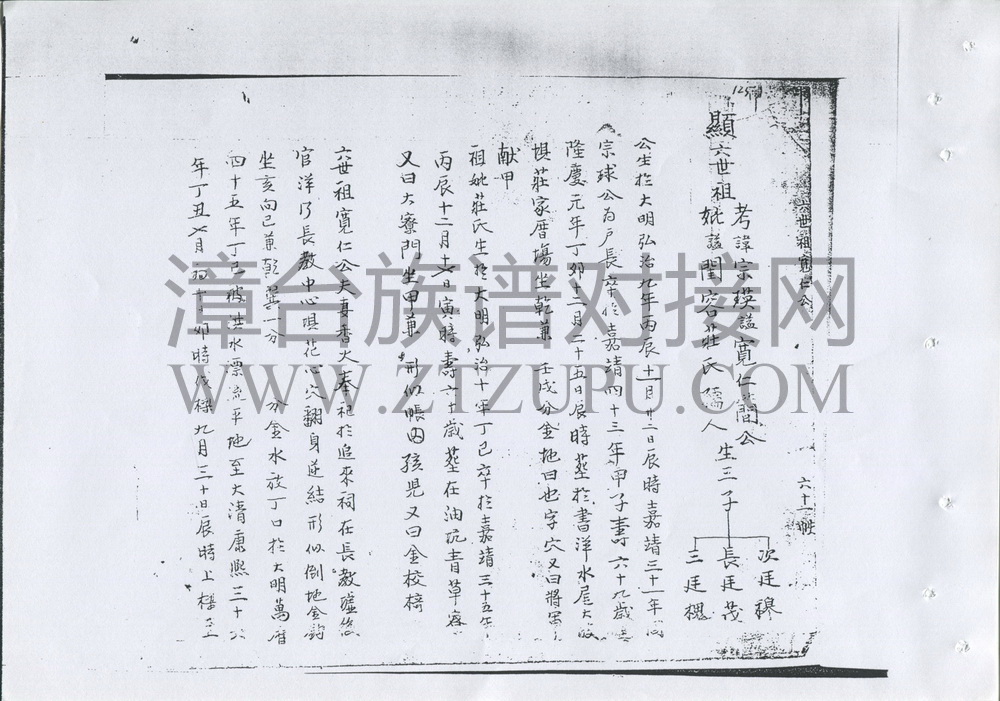 125
六世祖寬仁公
六十一
顯六世祖
考諱宗瑛諡寬仁簡公
妣諡閨容莊氏孺人
生三子
次廷穆
長廷茂
三廷槐
公生於大明弘治九年丙辰十一月廿二日辰時嘉靖三十一年
宗球公為戶長卒於嘉靖四十三年甲子壽六十九歲
隆慶元年丁卯十二月二十五日辰時葬於書洋水尾大
莊家厝塲坐乾兼 壬戌分金地曰也字穴又曰將軍
献甲
祖妣莊氏生於大明弘治十年丁巳卒於嘉靖三十五年
丙辰十二月十六日寅時壽六十歲葬在油坑青草
又曰大寮門坐甲兼 形似帳內孩児又曰金校椅
六世祖寬仁公夫妻香火奉祀於追來祠在長教墟
官洋乃長教中心 花心穴翻身逆結形似倒地金鈎
坐亥向巳兼乾巽一分 分金水放丁口於大明萬曆
四十五年丁巳被洪水漂流平地至大清康熙三十六
年丁丑七月初十日卯時伐樑九月三十日辰時上樑至
漳台族谱对接网
WWW.ZIZUPU.COM